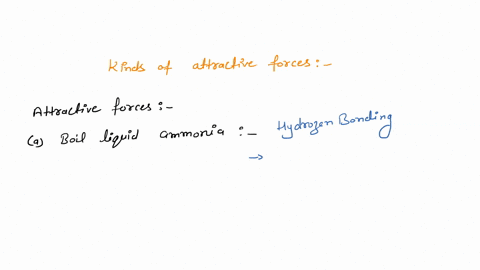 Kinds of attractive forces:-
Attractive forces:-
(a) Boil liquid ammonia :- Hydrogen Bonding
→